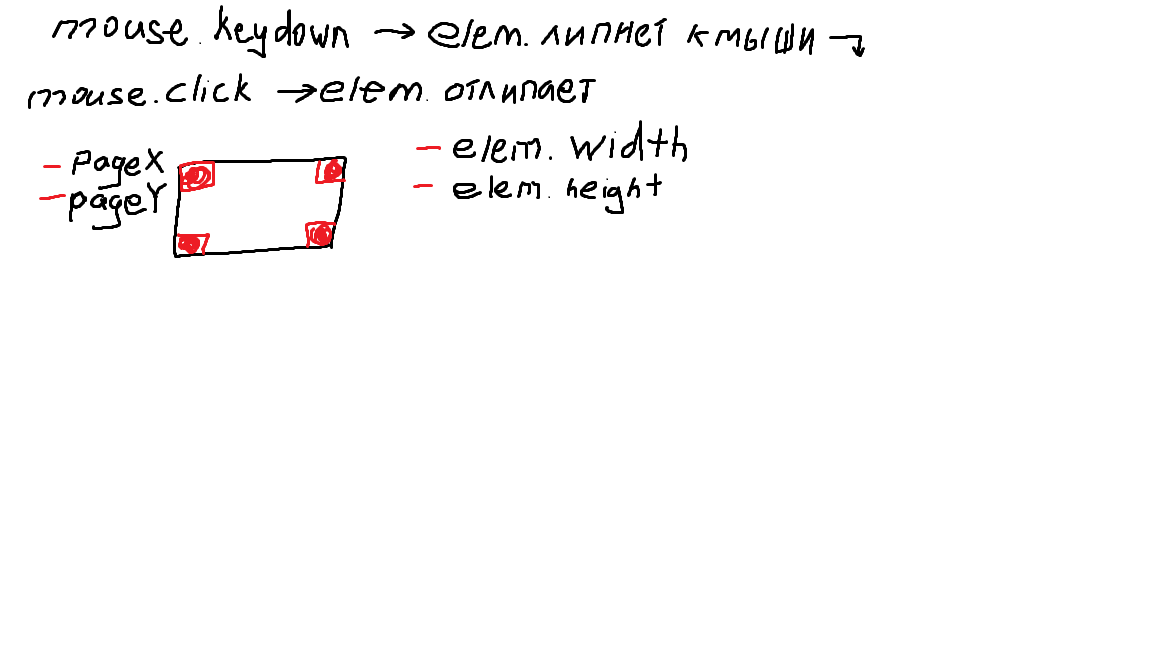 mouse.keydown → elem. липнет к мыши →
mouse.click → elem. отлипает
- PageX
- pageY
- elem. width
- elem. height